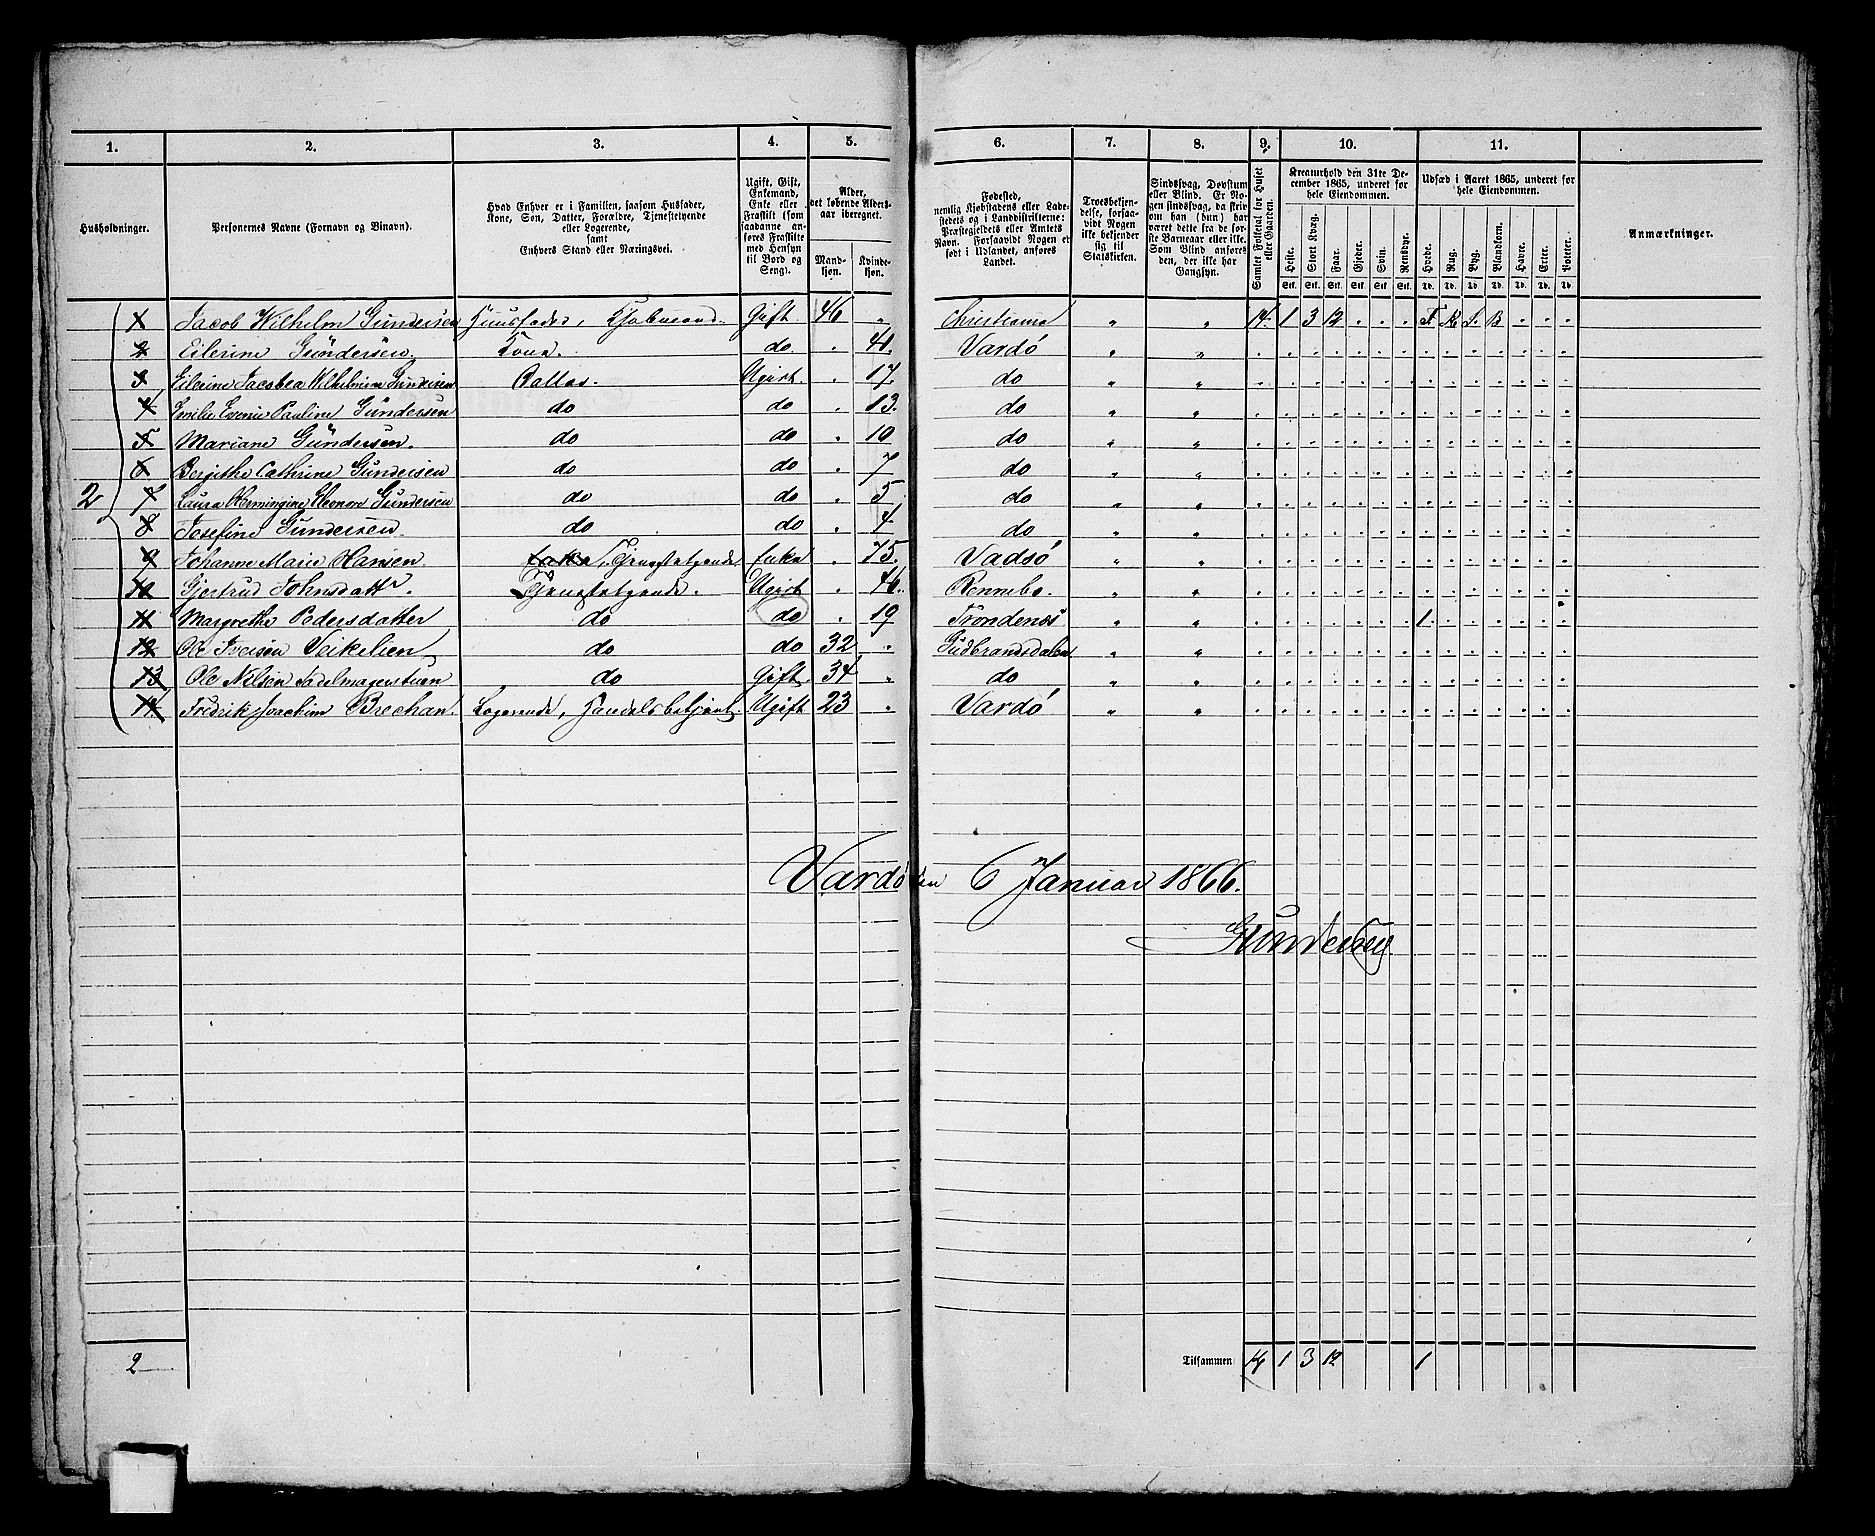 1. 2. 3. 4. 5. 6. 7. 8. 9. 10. 11.
Husholdninger.
Personernes Navne (Fornavn og Binavn).
Hvad Enhver er i Familien, saasom Husfader,
Kone, Søn, Datter, Forældre, Tjenestetyende
eller Logerende,
samt
Enhvers Stand eller Næringsvei.
Ugift, Gift,
Enkemand,
Enke eller
Fraskilt (som
saadanne an-
føres Fraskilte
med Hensyn
til Bord og
Seng).
Alder,
det løbende Alders-
aar iberegnet.
Mand-
kjøn.
Kvinde-
kjøn.
Fødested,
nemlig Kjøbstadens eller Lade-
stedets og i Landdistrikterne:
Præstegjeldets eller Amtets
Navn. Forsaavidt Nogen er
født i Udlandet, anføres
Landet.
Troesbekjen-
delse, forsaa-
vidt Nogen
ikke bekjender
sig til
Statskirken.
Sindssvag, Døvstum
eller Blind. Er No-
gen sindssvag, da skriv
om han (hun) har
været dette fra de før-
ste Barneaar eller ikke.
Som Blind anføres
den, der ikke har
Gangsyn.
Samlet Folketal for Huset
eller Gaarden.
Kreaturhold den 31te De-
cember 1865, underet for
hele Eiendommen.
Heste. Stort Kvæg. Faar. Gjeder. Svin. Rensdyr.
Stk. Stk. Stk. Stk. Stk. Stk.
Udsæd i Aaret 1865, underet for
hele Eiendommen.
Hvede. Rug. Byg. Blandkorn. Havre. Erter. Poteter.
Td. Td. Td. Td. Td. Td. Td.
Anmærkninger.
1 Jacob Wilhelm Gundersen Huusfader, Kjøbmand. Gift 46 " Christiania " " 14. 1 3 12
2 Eilerine Gündersen. Kone. do. . 41. Vardö " "
3 Eilerine Jacobea Wilhelmine Gundersen Datter. Ugivt. . 17. do " "
4 Emilie Evenie Pauline Gündersen do do . 13. do " "
5 Mariane Gündersen. do do . 10 do " "
6 Bergithe Cathrine Gundersen do do . 7 do " "
2 7 Laura Hermingine Eleonore Gundersen do do . 5 do " "
8 Josefine Gundersen. do do . 4 do " "
9 Johanne Marie Hansen Enke, Tjenestetyende Enke . 75. Vadsö " "
10 Gjertrud Johnsdattr. Tjenestetyende. Ugivt . 46. Rennebo. " "
11 Margrethe Pedersdatter do do . 19 Trondenes " " 1.
12 Ole Iversen Veikelien do do 32 " Gudbrandsdalen " "
13 Ole Nilsen Sadelmagerstuen do Gift 34 " do " "
14 Fredrik Joachim Brechan. Logerende, Handelsbetjent. Ugift 23 " Vardö " "
Vardö den 6 Januar 1866.
2
Tilsammen 14 1 3 12 1